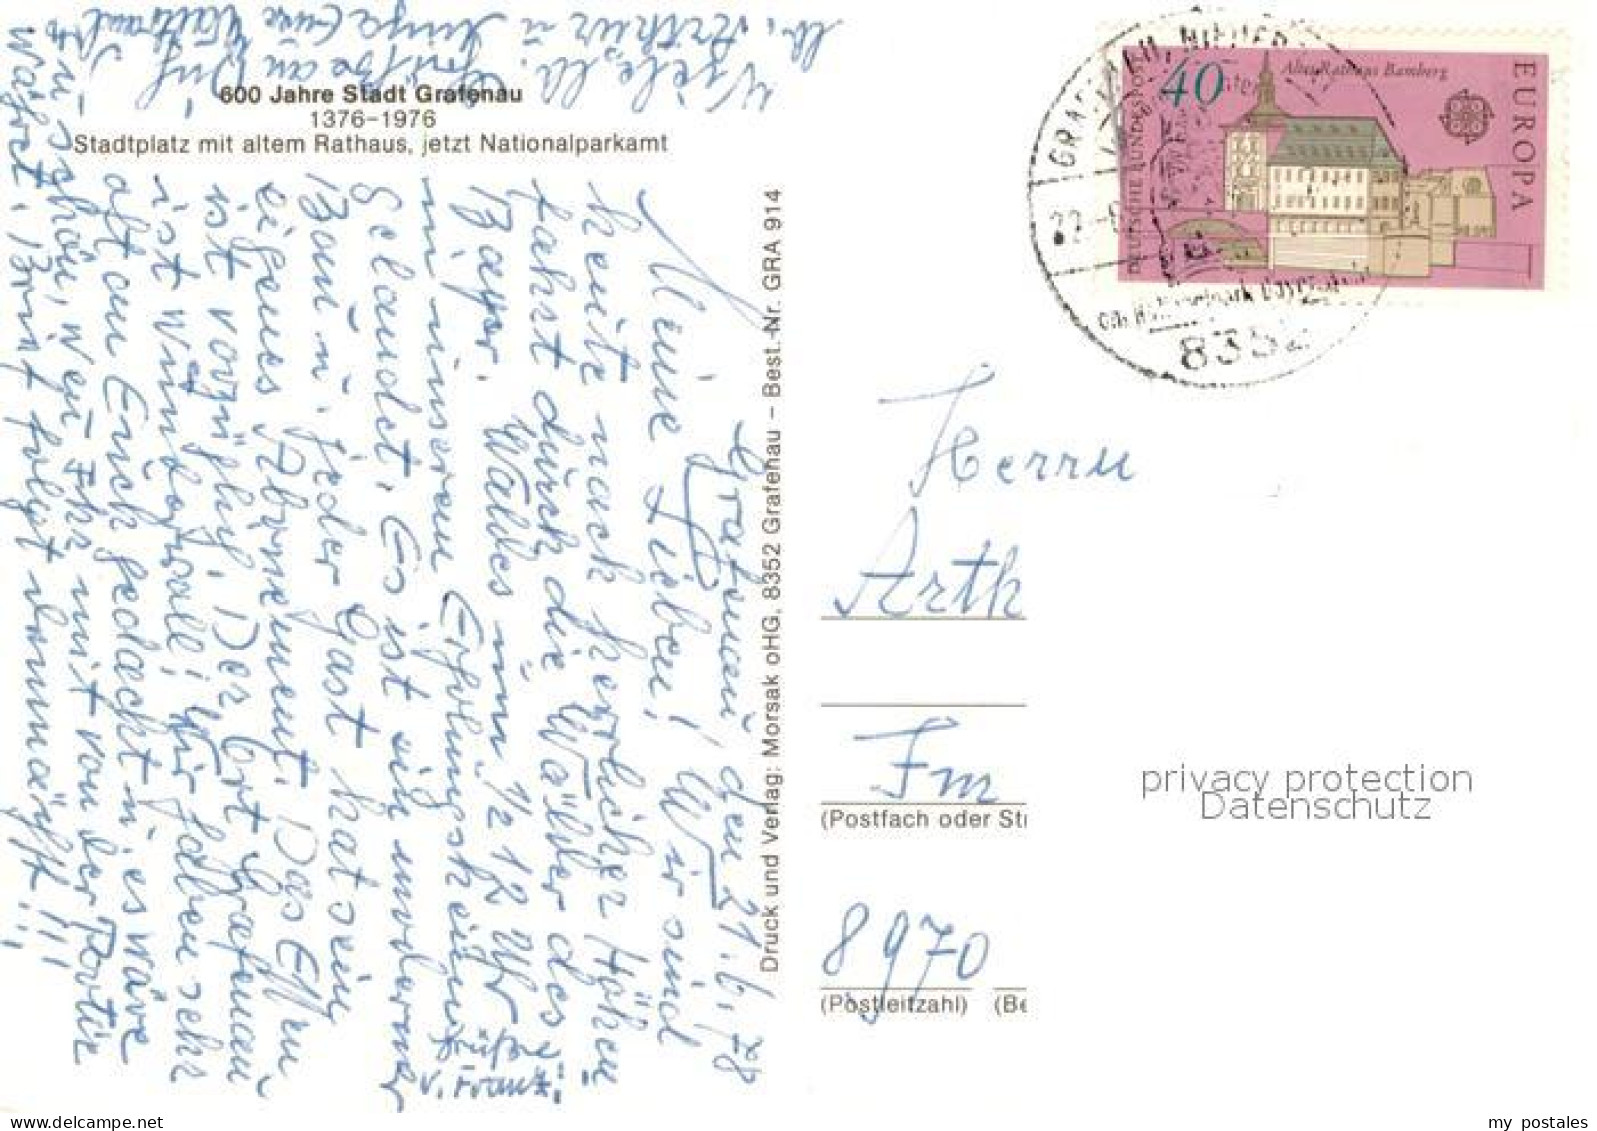 600 Jahre Stadt Grafenau
1376-1976
Stadtplatz mit altem Rathaus, jetzt Nationalparkamt
Druck und Verlag: Morsak oHG, 8352 Grafenau - Best.-Nr. GRA 914
Grafenau den 21.6.78
Meine Lieben! Wir sind
heute nach herrlicher Höhen
fahrt durch die Wälder des
Bayer. Waldes um 1/2 12 Uhr
in unserem
gelandet. Es ist ein moderner
Bau u. jeder Gast hat sein
eigenes Das Essen
ist vorzüglich. Der Ort Grafenau
ist wundervoll! Wir haben sehr
oft an Euch gedacht u. es wäre
so schön, wenn Ihr mit von der Partie
wärt. Brief folgt
Viele lb. Grüße an Dich
lb. Arthur u. Eure Waltraud
Grüße
v. Franz
DEUTSCHE BUNDESPOST
40
Altes Rathaus Bamberg
EUROPA
GRAFENAU, NIEDER
22.-
8352
Herrn
Arth
Fm
(Postfach oder Str
8970
(Postleitzahl) (Be
privacy protection
Datenschutz
my postales